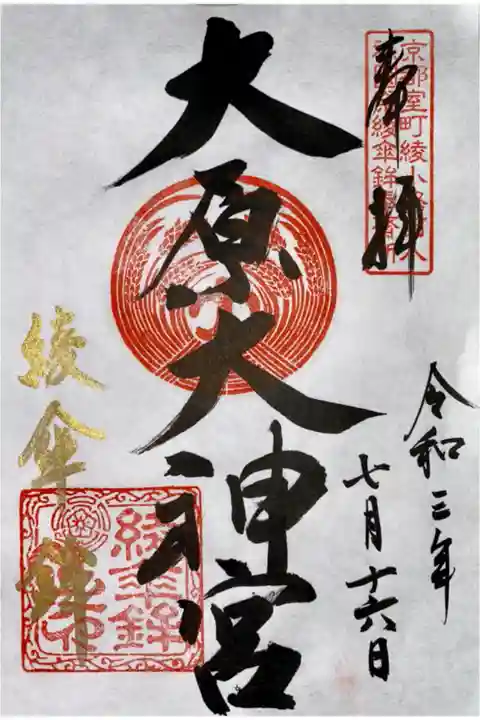 奉拝
京都室町綾小路
綾傘鉾
大原大神宮
令和三年
七月十六日
綾傘鉾
綾傘鉾